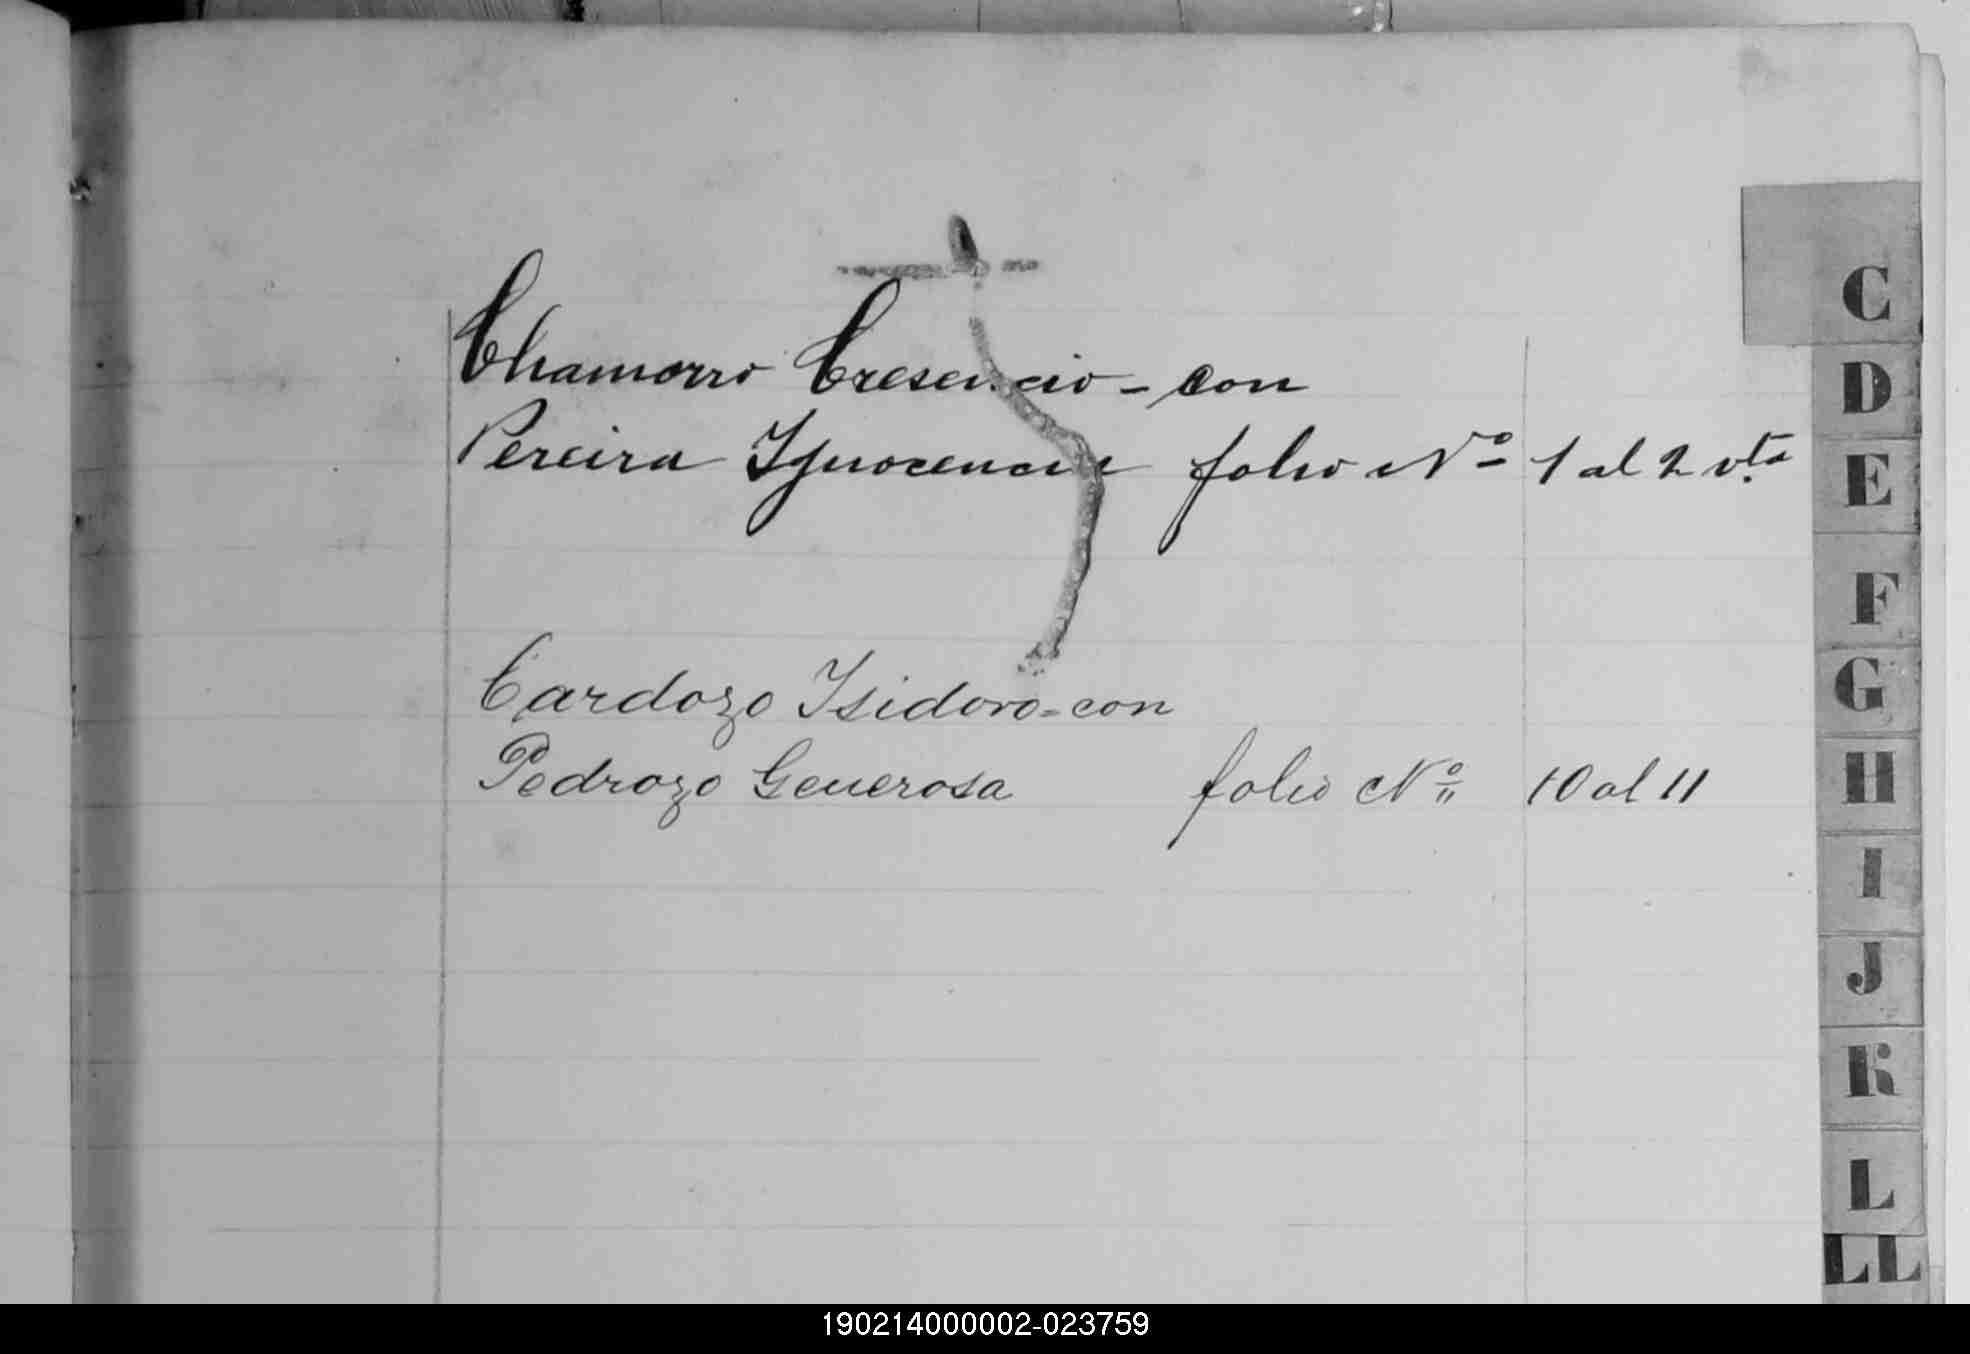 Chamorro Cresencio - con
Pereira Ygnocencia folio Nº 1 al 2 vta
Cardozo Isidoro = con
Pedrozo Generosa folio Nº 10 al 11
C
D
E
F
G
H
I
J
K
L
LL
190214000002-023759